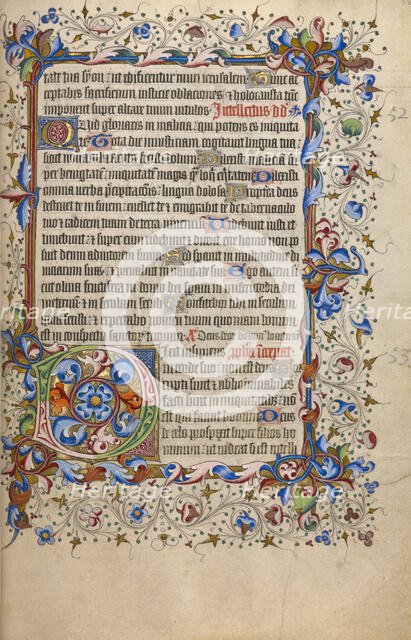 tate tua syon: ut edificentur muri ierusalem Tunc ac
ceptabis sacrificium iusticie oblaciones & holocausta tūc
imponent super altare tuū uitulos Intellectus dd
Quid gloriaris in malicia: qui potens es iniquita
te Tota die iniusticiam cogitauit lingua tua:
sicut nouacula acuta fecisti dolum Dilexisti maliciā su
per benignitatem: iniquitatem magis qm̄ loqui equitatem Dilexisti
omnia verba p̄cipitacōis: lingua dolosa Propterea deus
destruet te in finem: euellet te & emigrabit te de tabernaculo
tuo & radicem tuam de terra uiuentium Videbunt iusti et
timebunt: & super eum ridebunt & dicent ecce homo non po
suit deum adiutorem suum Sed sperauit in multitudine di
uitiarum suarum: & preualuit in uanitate sua Ego autem si
cut oliua fructifera in domo dei speraui in misericordia dei
in eternum: & in seculum seculi Confitebor tibi in seculum
quia fecisti: & expectabo nomen tuum quoniam bonum
est in conspectu sanctorum tuorum
Dixit insipiens
in corde suo: non est deus
Corrupti sunt & abhominabiles
facti sunt in iniquitatibus: non
est qui faciat bonum Deus
de celo prospexit super filios ho
minum: ut uideat si est intelli
52
53
Heritage
Heritage
Heritage
Heritage
Heritage